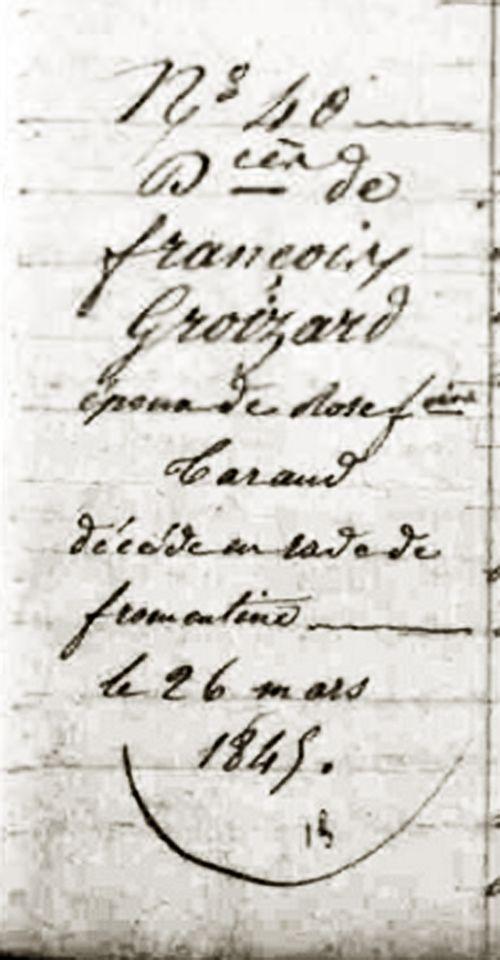 N° 40
D cès de
françois
Groizard
époux de Rose f oise
Caraud
décédé en rade de
fromentine
le 26 mars
1845.